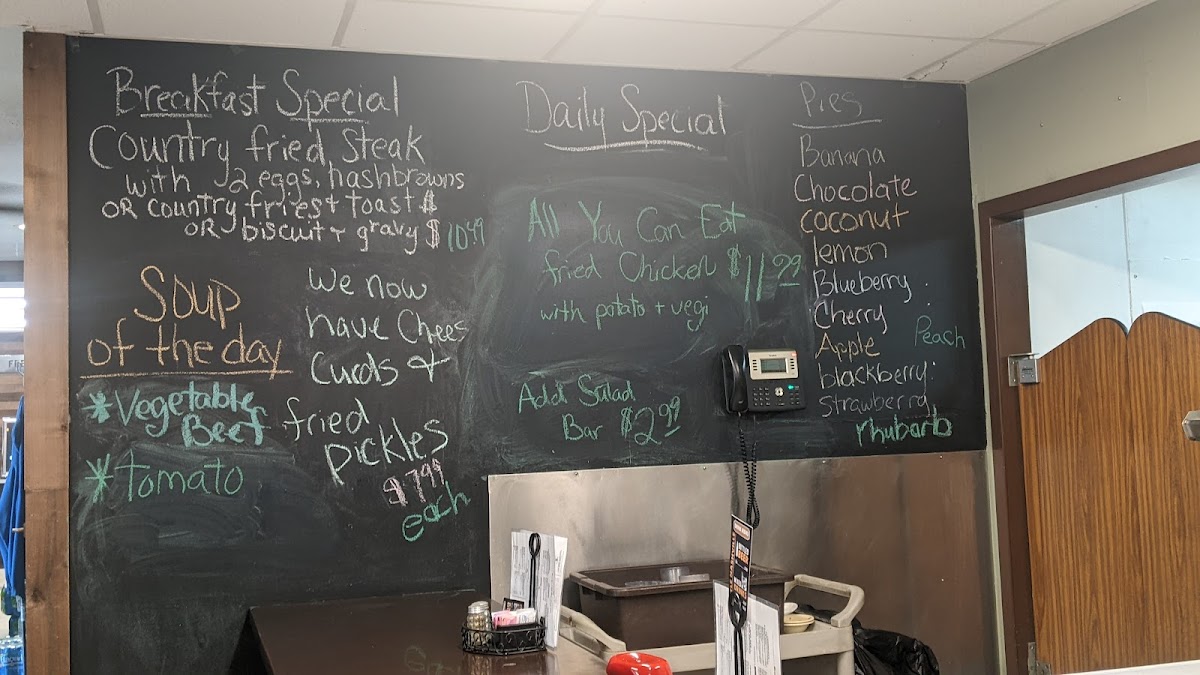 Breakfast Special
Country fried steak
with 2 eggs, hashbrowns
OR country fries + toast &
OR biscuit + gravy $10.49
Soup
of the day
*Vegetable
Beef
*Tomato
We now
have Chees
Curds &
fried
pickles
$7.99
each
Daily Special
All You Can Eat
fried Chicken $11.99
with potato + vegi
Add Salad
Bar $2.99
Pies
Banana
Chocolate
coconut
lemon
Blueberry
Cherry
Apple
Peach
blackberry
Strawberry
rhubarb